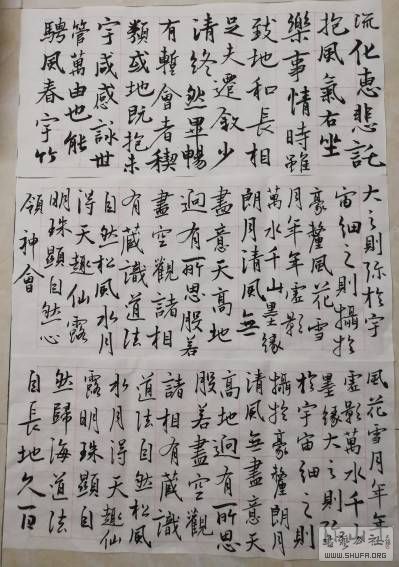 流化惠悲託
抱風氣右坐
樂事情時雖
致地和長相
足夫遷敘少
清終然畢暢
有暫會者稧
類或地既抱未
宇咸感詠世
管萬由也能
騁風春宇竹
大之則弥於宇
宙細之則攝於
豪釐風花雪
月年年虛影
萬水千山墨緣
朗月清風無
盡意天高地
迥有所思般若
盡空觀諸相
有蔵識道法
自然松風水月
得天趣仙露
明珠顯自然心
領神會
風花雪月年年
虛影萬水千
墨緣大之則弥
於宇宙細之則
攝於豪釐朗月
清風無盡意天
高地迥有所思
般若盡空觀
諸相有蔵識
道法自然松風
水月得天趣仙
露明珠顯自
然歸海道法
自長地久百
WWW.SHUFA.ORG